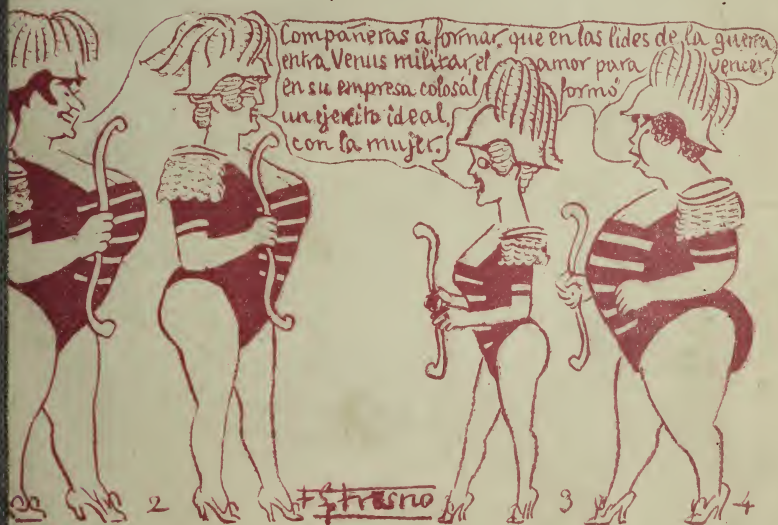 Compañeras a formar, que en las lides de la guerra
entra Venus militar, el amor para vencer,
en su empresa colosal formó
un ejército ideal,
con la mujer.
2 Fresno 3 4